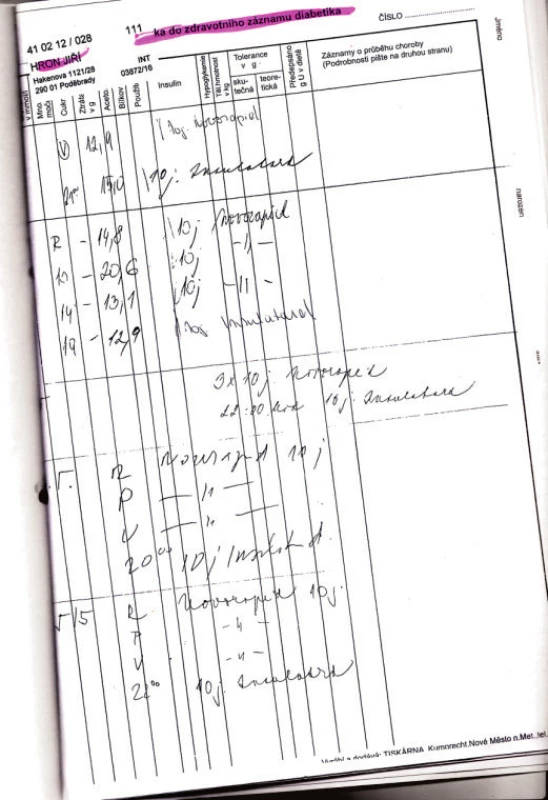 41 02 12 / 028
111
ka do zdravotního záznamu diabetika
ČÍSLO
Jméno
HRON JIŘÍ
Hakenova 1121/28
290 01 Poděbrady
INT
03872/16
v mmol/l
Mno. moči
Cukr
Ztráta v g
Aceto
Bílkov
Použití
Insulin
Hypoglykemie
Těl. hmotnost v kg
Tolerance
v g
sku-
tečná
teore-
tická
Předepsáno
g U v dietě
Záznamy o průběhu choroby
(Podrobnosti pište na druhou stranu)
narozen
V 12,9 10j. Novorapid
15,0 10j. Insulatard
R - 14,8 10j Novorapid
10 - 20,6 10j -11-
14 - 13,1 10j -11-
19 - 12,9 10j. Insulatard
3x 10j Novorapid
22:00 hod 10j. Insulatard
5. R Novorapid 10j
P — 11 —
V — 11 —
20⁰⁰ 10j Insulatard
5/5 R Novorapid 10j.
P -11-
V -11-
22⁰⁰ 10j. Insulatard
Vyrábí a dodává: TISKÁRNA Kumprecht, Nové Město n.Met. tel.